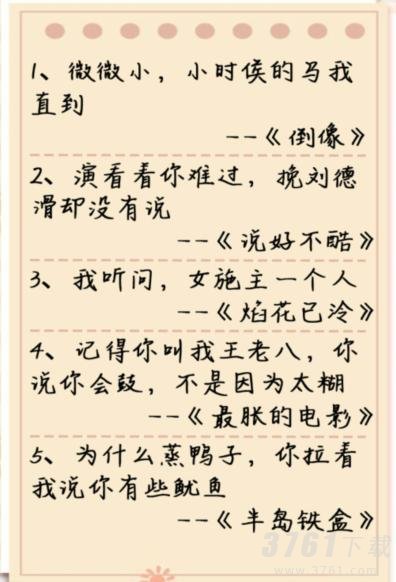 1、微微小，小时侯的马我
直到
--《倒像》
2、演看着你难过，挽刘德
滑却没有说
--《说好不酷》
3、我听问，女施主一个人
--《焰花已冷》
4、记得你叫我王老八，你
说你会鼓，不是因为太糊
--《最胀的电影》
5、为什么蒸鸭子，你拉着
我说你有些鱿鱼
--《半岛铁盒》
3761下载
www.3761.com